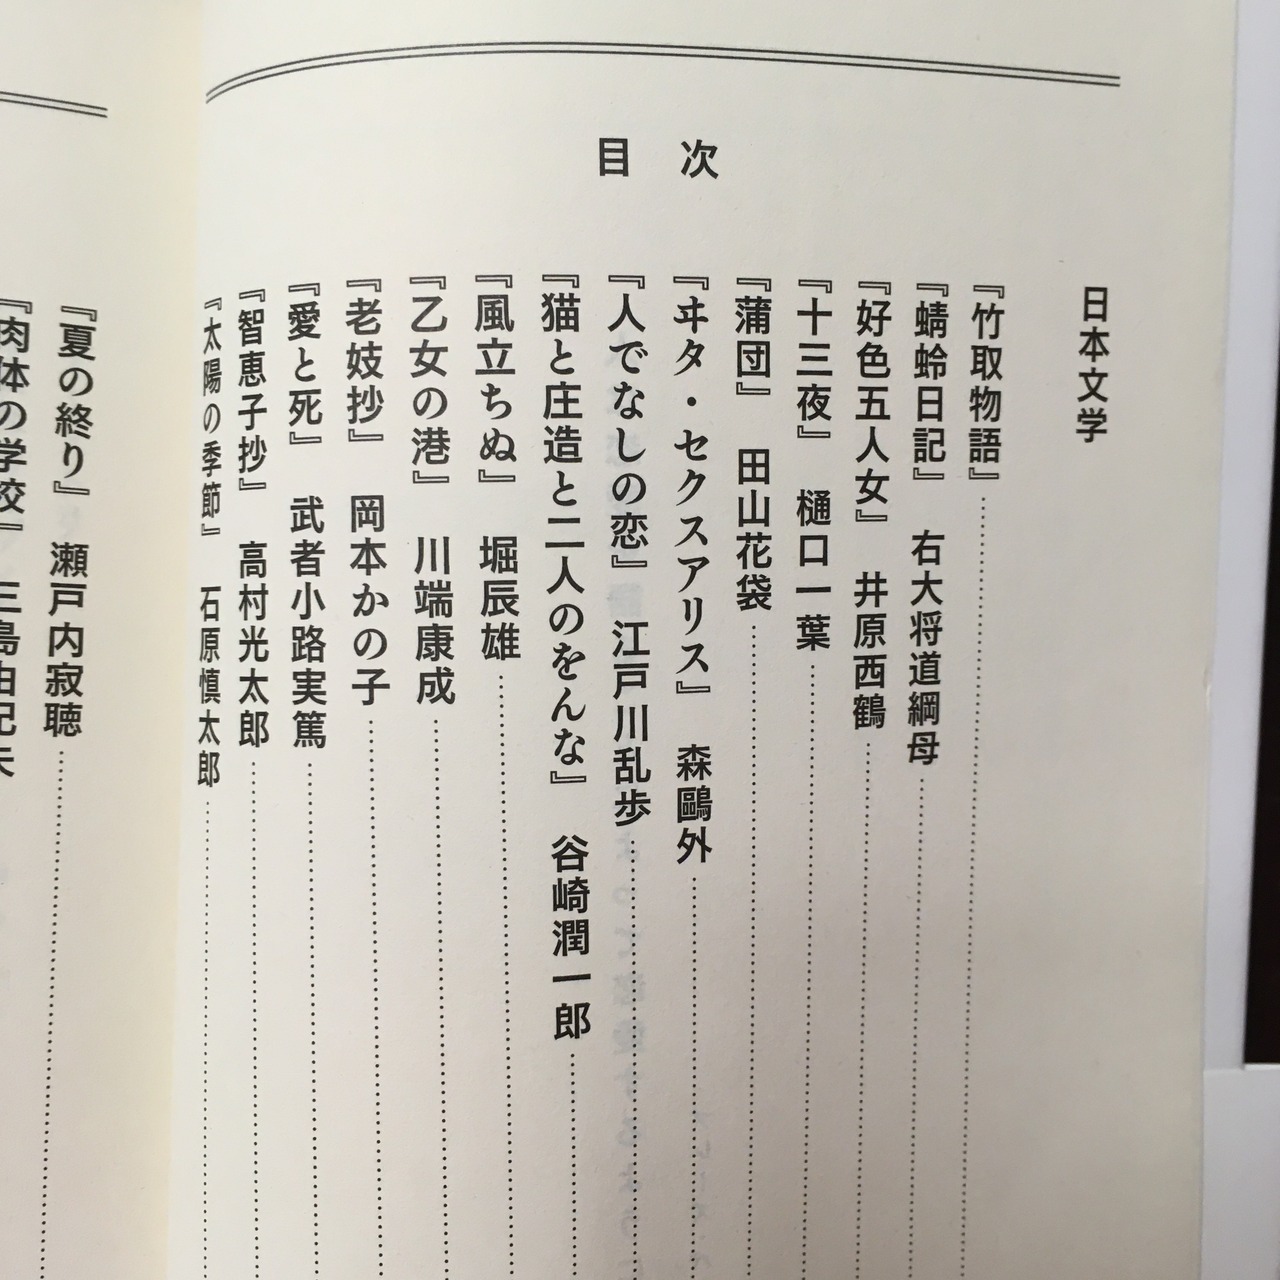 目 次
日本文学
『竹取物語』
『蜻蛉日記』 右大将道綱母
『好色五人女』 井原西鶴
『十三夜』 樋口一葉
『蒲団』 田山花袋
『ヰタ・セクスアリス』 森鷗外
『人でなしの恋』 江戸川乱歩
『猫と庄造と二人のをんな』 谷崎潤一郎
『風立ちぬ』 堀辰雄
『乙女の港』 川端康成
『老妓抄』 岡本かの子
『愛と死』 武者小路実篤
『智恵子抄』 高村光太郎
『太陽の季節』 石原慎太郎
『夏の終り』 瀬戸内寂聴
『肉体の学校』 三島由紀夫